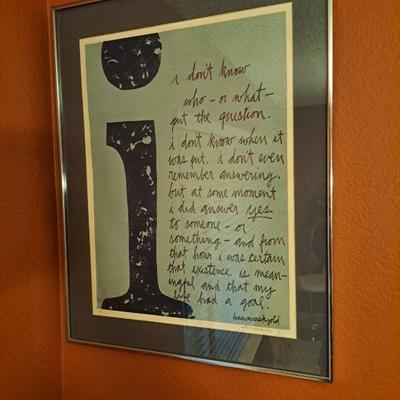 i
i don't know
who - or what -
put the question.
i don't know when it
was put. i don't even
remember answering.
but at some moment
i did answer yes
to someone - or
something - and from
that hour i was certain
that existence is mean-
ingful and that my
life had a goal.
hammarskjold